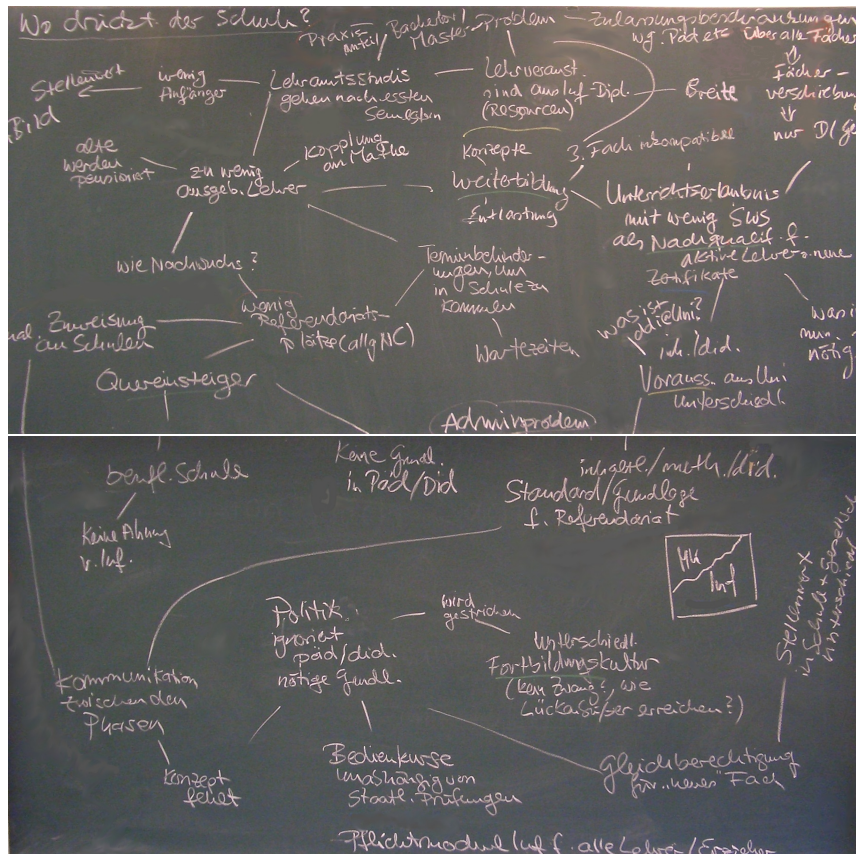 Wo drückt der Schuh?
Praxis
anteil
Bachelor/
Master
Problem
Zulassungsbeschränkungen
wg. Päd etc über alle Fächer
Fächer-
verschiebung
nur D/Ge
Stellenwert
Bild
wenig
Anfänger
Lehramtsstudis
gehen nach ersten
Semestern
Lehrveranst.
sind aus Inf-Dipl.
(Ressourcen)
Breite
alte
werden
pensioniert
zu wenig
ausgeb. Lehrer
Kopplung
an Mathe
Konzepte
Weiterbildung
Entlastung
3. Fach inkompatibel
Unterrichtserlaubnis
mit wenig SWS
als Nachqualif. f.
aktive Lehrer o. neue
Zertifikate
wie Nachwuchs?
Terminbehinder-
ungen, um
in Schule zu
kommen
Wartezeiten
wenig
Referendariats-
plätze (allg NC)
Zuweisung
an Schulen
Quereinsteiger
was ist
did@Uni?
inh./did.
Vorauss. aus Uni
unterschiedl.
was i
nun
nötig
Adminproblem
berufl. Schule
Keine Ahnung
v. Inf.
Keine Grundl.
in Päd/Did
inhaltl./meth./did.
Standard/Grundlage
f. Referendariat
Inf
Stellenwert
in Schule + Gesellsch
unterschied
Politik
ignoriert
päd/did.
nötige Grundl.
wird
gestrichen
unterschiedl.
Fortbildungskultur
(kein Zwang?, wie
Lückenbüßer erreichen?)
Kommunikation
zwischen den
Phasen
Konzept
fehlt
Bedienkurse
unabhängig von
Staatl. Prüfungen
Gleichberechtigung
für "neues" Fach
Pflichtmodul Inf f. alle Lehrer/Erzieher